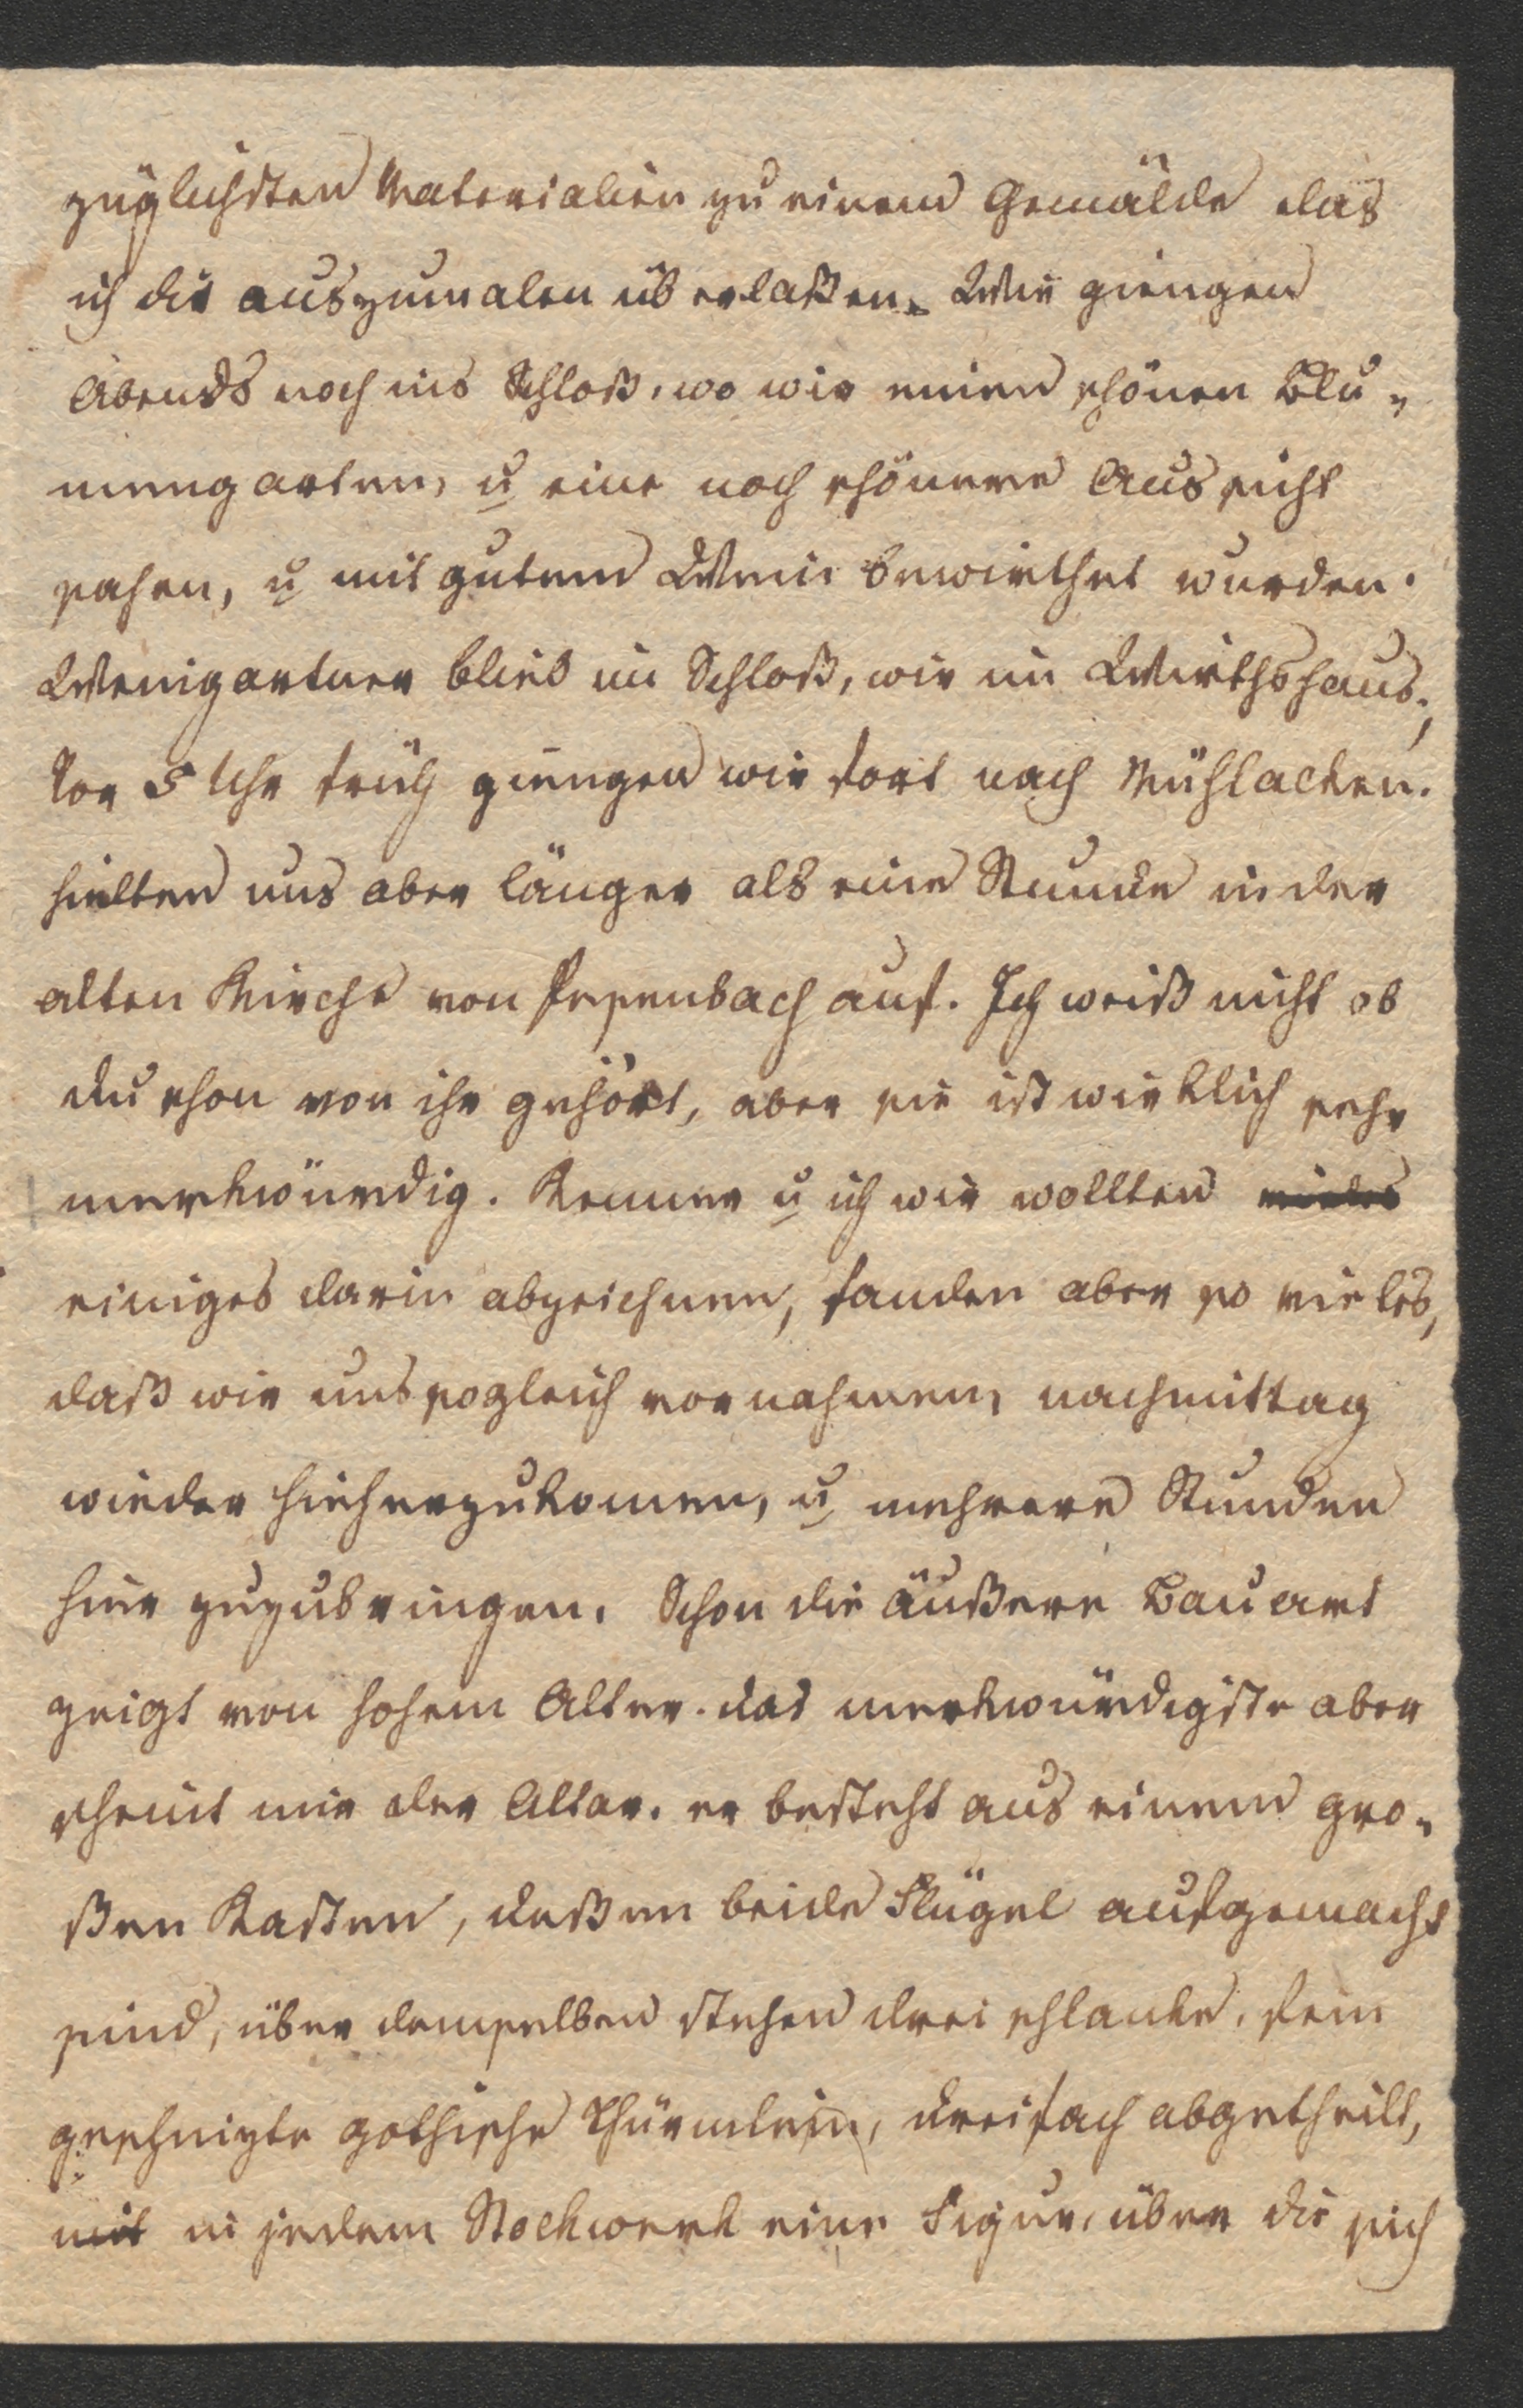 züglichsten Materialien zu einem Gemälde das
ich dir auszumalen überlaßen. Wir giengen
Abends noch ins Schloß, wo wir einen schönen Blu-
mengarten, u eine noch schönere Aussicht
sahen, u mit gutem Wein bewirthet wurden.
Weingartner blieb im Schloß, wir im Wirthshaus,
Vor 5 Uhr früh giengen wir fort nach Mühlacken.
hielten uns aber länger als eine Stunde in der
alten Kirche von Pesenbach auf. Ich weiß nicht ob
du schon von ihr gehört, aber sie ist wirklich sehr
merkwürdig. Kenner u ich wir wollten
einiges darin abzeichnen, fanden aber so vieles,
daß wir uns sogleich vornahmen, nachmittag
wieder hieherzukomen, u mehrere Stunden
hier zuzubringen. Schon die äußere Bauart
zeigt von hohem Alter. das merkwürdigste aber
scheint mir der Altar. er besteht aus einem gro-
ßen Kasten, deßen beide Flügel aufgemacht
sind, über demselben stehen drei schlanke, fein
geschnizte gothische Thürmlein, dreifach abgetheilt,
mit in jedem Stockwerk eine Figur, über die sich